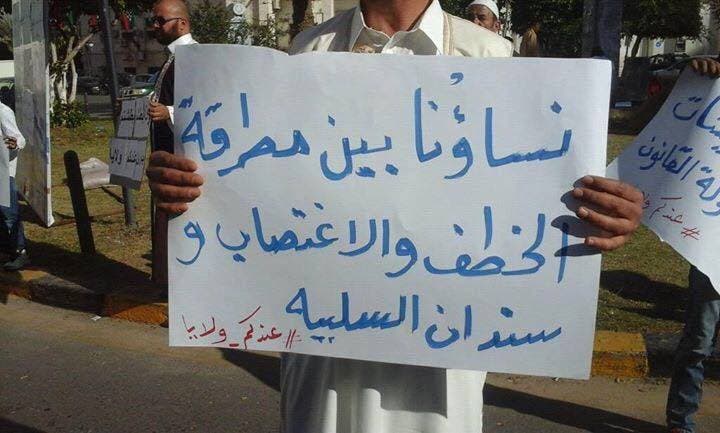 نساؤُنا بين مطرقة
الخطف والاغتصاب و
سندان السلبيه
#عندكم_ولايا
دولة القانون
#عندكم